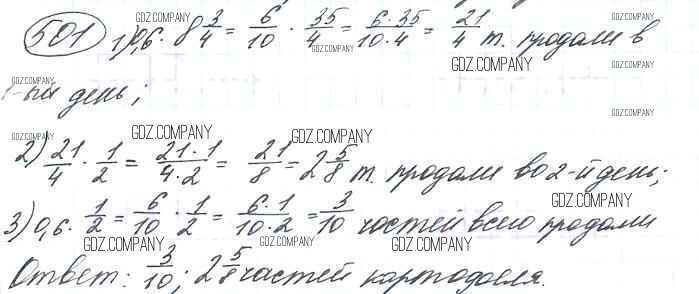 501 1) 0,6 · 8 3/4 = 6/10 · 35/4 = 6·35/10·4 = 21/4 т. продали в
1-ый день;
2) 21/4 · 1/2 = 21·1/4·2 = 21/8 = 2 5/8 т. продали во 2-й день;
3) 0,6 · 1/2 = 6/10 · 1/2 = 6·1/10·2 = 3/10 частей всего продали
Ответ: 3/10; 2 5/8 частей картофеля.
GDZ.COMPANY
GDZ.COMPANY
GDZ.COMPANY
GDZ.COMPANY
GDZ.COMPANY
GDZ.COMPANY
GDZ.COMPANY
GDZ.COMPANY
GDZ.COMPANY
GDZ.COMPANY
GDZ.COMPANY
GDZ.COMPANY
GDZ.COMPANY